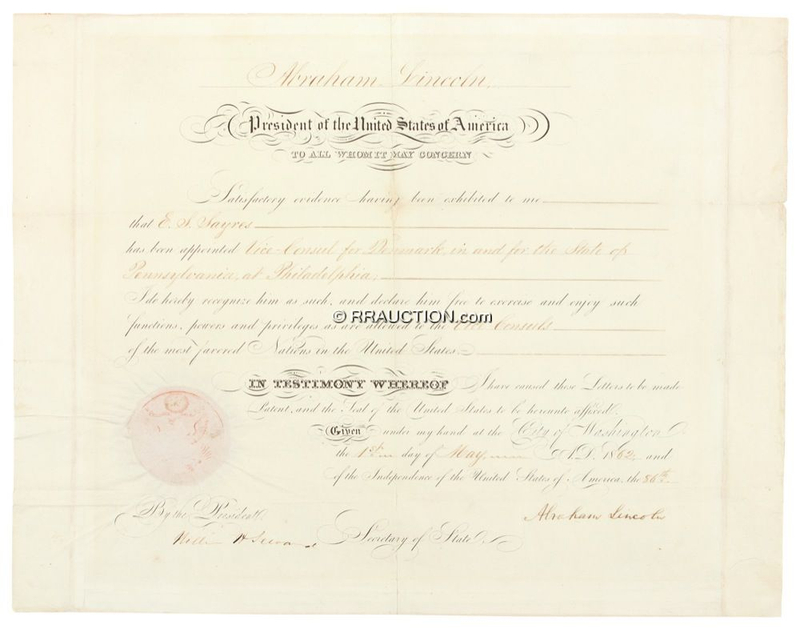 Abraham Lincoln.
President of the United States of America
TO ALL WHOM IT MAY CONCERN
Satisfactory evidence having been exhibited to me
that E. S. Sayres
has been appointed Vice Consul for Denmark, in and for the State of
Pennsylvania, at Philadelphia,
I do hereby recognize him as such, and declare him free to exercise and enjoy such
functions, powers and privileges as are allowed to the Vice Consuls
of the most favored Nations in the United States.
© RRAUCTION.com
IN TESTIMONY WHEREOF I have caused these Letters to be made
Patent, and the Seal of the United States to be hereunto affixed.
Given under my hand at the City of Washington
the 1st day of May A.D. 1862 and
of the Independence of the United States of America, the 86th.
By the President
Abraham Lincoln
William H Seward Secretary of State.